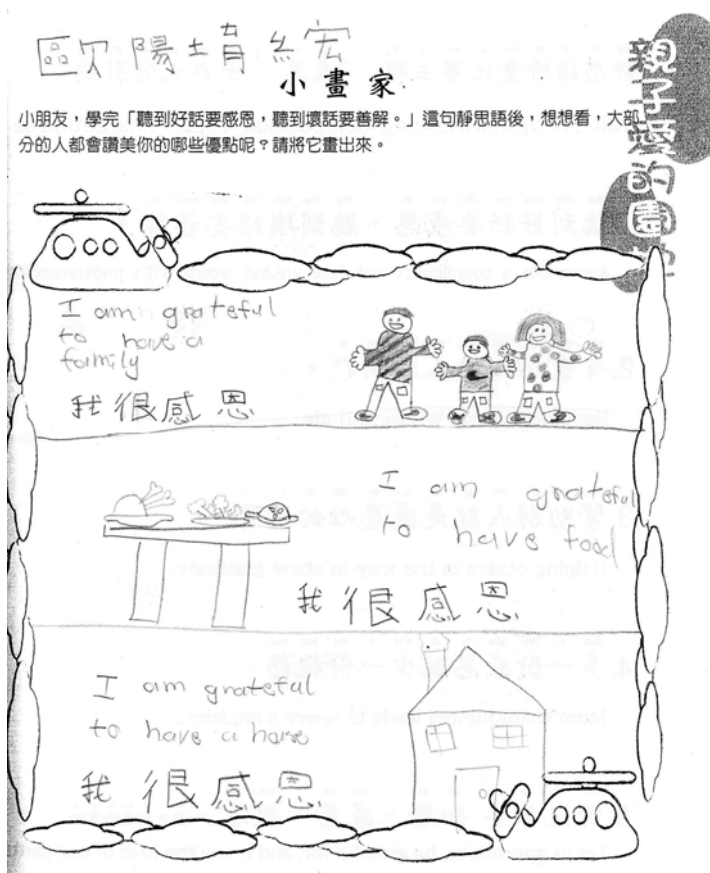 歐陽
小畫家
小朋友，學完「聽到好話要感恩，聽到壞話要善解。」這句靜思語後，想想看，大部
分的人都會讚美你的哪些優點呢？請將它畫出來。
親子愛的園地
I am grateful
to have a
family
我很感恩
I am grateful
to have food
我很感恩
I am grateful
to have a
我很感恩